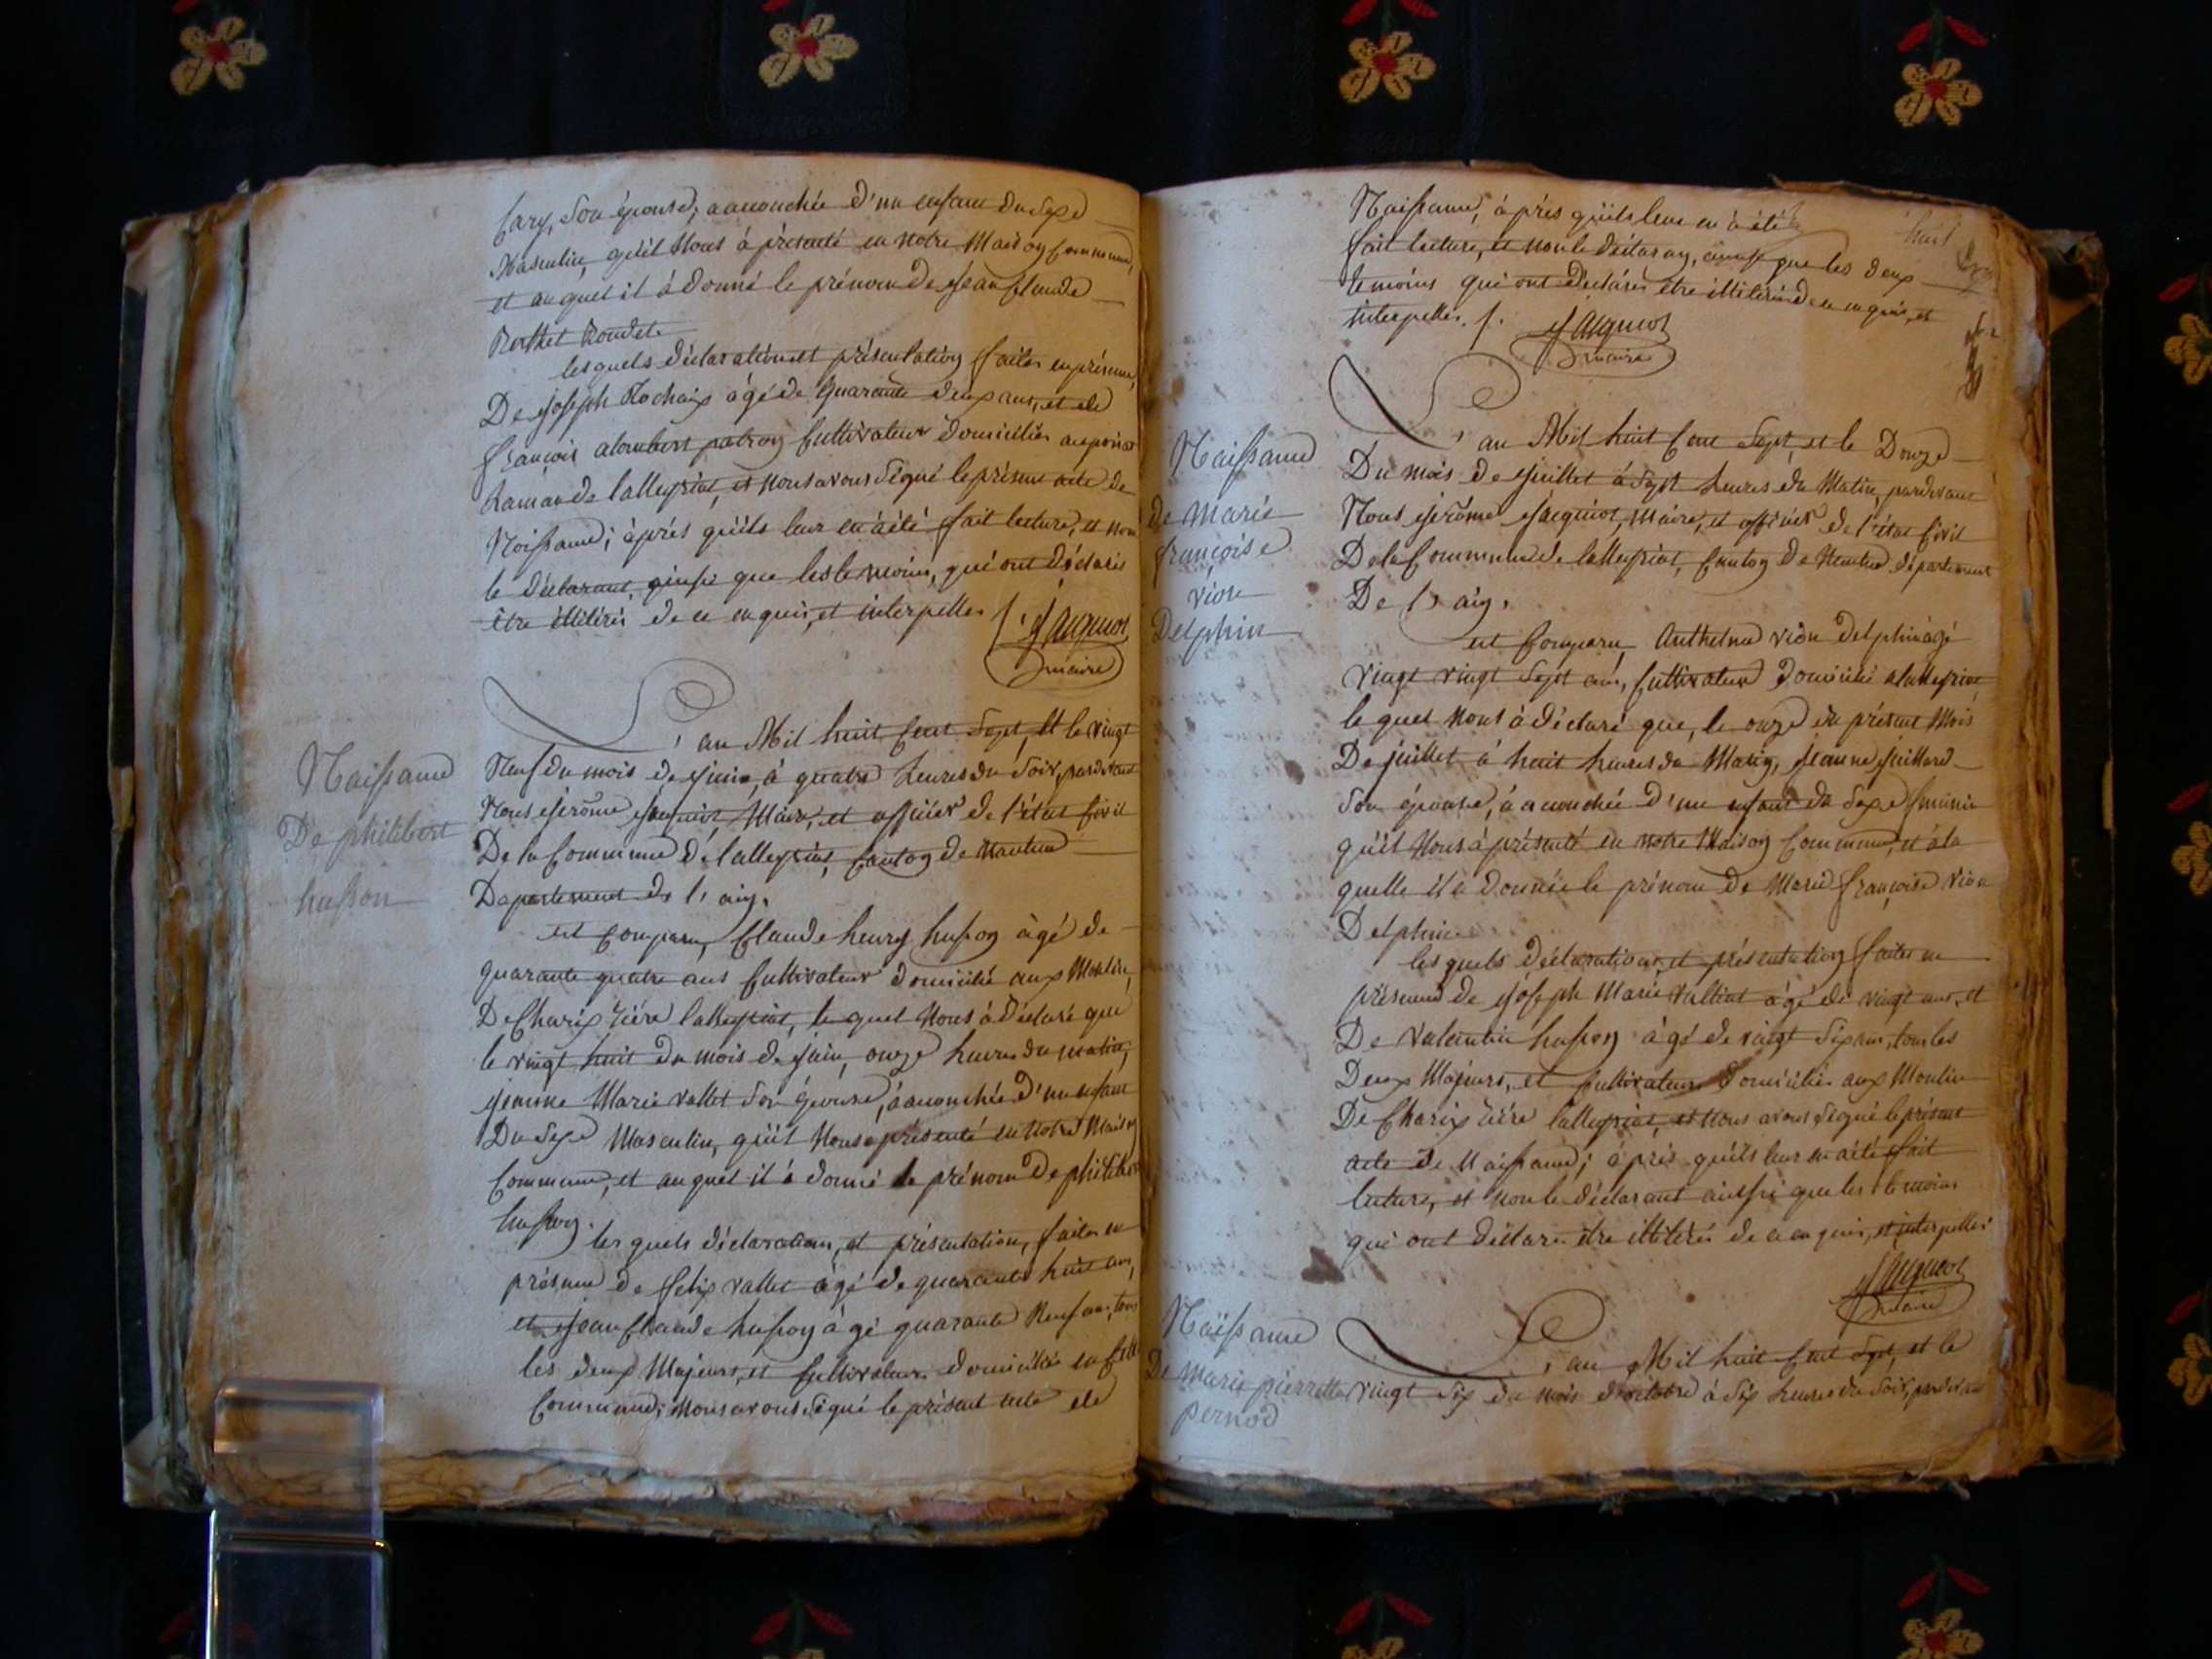 Cary, Son épouse, à accouchée d'un enfant du Sexe
Masculin, qu'il Nous à présenté en notre Maison Commune,
et auquel il à donné le prénom de jean Claude
Berthet Bondet.
lesquels déclaration et présentation faites en présence,
De joseph Rochaix âgé de quarante deux ans, et de
françois alombert patron Cultivateurs domiciliés au poizat
de lalleyriat, et Nous avons Signé le présent acte de
Naissance; àprés qu'ils leur en à été fait lecture, et non
le déclarant, ainsi que les temoins, qui ont déclarés
être illitérés de ce enquis, et interpellés ./. Jacquiot
maire
L'an Mil huit Cent Sept, Et le vingt
Neuf du mois de juin, à quatre heures du Soir, pardevant
Nous jérôme jacquiot, Maire, et officier de l'état Civil
De la Commune de lalleyriat, Canton de Nantua
Departement de l'ain,
est Comparu, Claude henry husson âgé de
quarante quatre ans Cultivateur domicilié aux Moulin,
De Charix rière lalleyriat, le quel Nous à déclaré que
le vingt huit du mois de juin, onze heures du matin,
Marie vallet Son épouse, à accouchée d'un enfant
Du Sexe Masculin, qu'il Nous à présenté en Notre Maison
Commune, et auquel il à donné le prénom De philibert
husson.
les quels déclaration, et présentation, faites en
présence de felix vallet âgé de quarante huit ans,
et jean Claude husson âgé quarante Neuf ans, tous
les deux Majeurs, et Cultivateurs domiciliés en Cette
Commune; Nous avons Signé le présent acte de
Naissance
De philibert
husson
Naissance, àprés qu'ils leur en à été
fait lecture, et non le déclarant, ainsi que les deux
temoins qui ont déclarés être illitérés de ce enquis, et
interpellés ./. Jacquiot
maire
huit
L'an Mil huit Cent Sept, et le Douze
Du mois de juillet à Sept heures du Matin, pardevant
Nous jérôme jacquiot, Maire, et officier de l'état Civil
De la Commune de lalleyriat, Canton de Nantua département
De l'ain,
est Comparu, Anthelme vion delphin âgé
vingt vingt Sept ans, Cultivateur domicilié à lalleyriat,
le quel Nous à déclaré que, le onze du présent Mois
De juillet à huit heures du Matin, jeanne juillard
Son épouse, à accouchée d'un enfant du Sexe féminin
qu'il Nous à présenté en notre Maison Commune, et à la
quelle il a donnée le prénom De Marie françoise vion
Delphin.
les quels déclaration, et présentation faites en
présence de joseph Marie vallet âgé de vingt ans, et
De valentin husson âgé de vingt Six ans, tous les
Deux Majeurs, et Cultivateurs domiciliés aux Moulin
De Charix rière lalleyriat, et Nous avons Signé le présent
acte de Naissance; àprés qu'ils leur en à été fait
lecture, et non le déclarant ainsi que les temoins
qui ont déclarés être illitérés de ce enquis, et interpellés
Jacquiot
maire
Naissance
de marie
françoise
vion
Delphin
L'an Mil huit Cent Sept, et le
vingt Six du mois d'octobre à Six heures du Soir, pardevant
Naissance
De marie pierrette
pernod